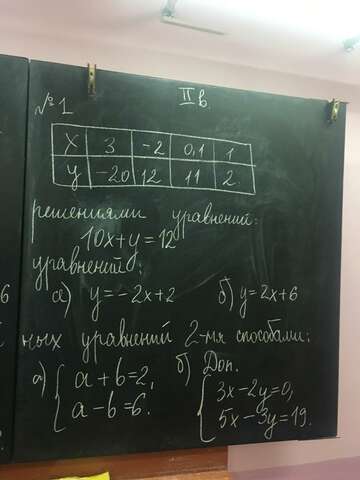 II в.
№ 1
x 3 -2 0,1 1
y -20 12 11 2
решениями уравнений:
10x+y=12
уравнений:
6 а) y=-2x+2 б) y=2x+6
ных уравнений 2-мя способами:
а) { a+b=2, б) Доп.
a-b=6. { 3x-2y=0,
5x-3y=19.